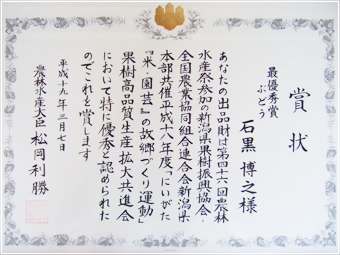 賞状
最優秀賞
ぶどう
石黒博之様
あなたの出品財は第四十六回農林
水産祭参加の新潟県果樹振興協会・
全国農業協同組合連合会新潟県
本部共催平成十八年度「にいがた
『米・園芸』の故郷づくり運動」
果樹高品質生産拡大共進会
において特に優秀と認められた
のでこれを賞します
平成十九年三月七日
農林水産大臣 松岡利勝